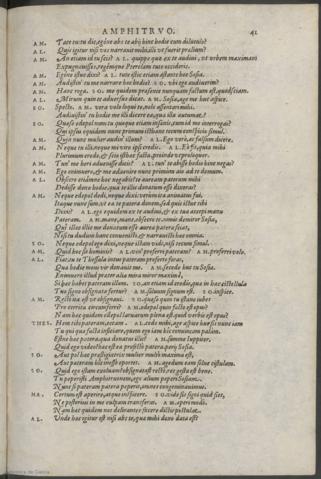 AMPHITRVO. 41
AM. Tace tu: tu dic, egone abs te abij hinc hodie cum diluculo?
AL. Quis igitur nisi vos narrauit mihi, illi vt fuerit prælium?
AM. An etiam id tu scis? AL. quippe quæ ex te audiui, vt vrbem maximam
Expugnauisses, regemque Pterelam tute occideris.
AM. Egone istuc dixi? AL. tute istic etiam astante hoc Sosia.
AM. Audistin' tu me narrare hæc hodie? SO. vbi ego audiuerim?
AM. Hanc roga. SO. me quidem præsente nunquam factum est, quod sciam.
AL. Mirum quin te aduersus dicat. AM. Sosia, age me huc aspice.
SO. Specto. AM. vera volo loqui te, nolo assentari mihi.
Audiuistin' tu hodie me illi dicere ea, quæ illa autumat?
SO. Quæso edepol num tu quoque etiam insanis, cum id me interrogas?
Qui ipsus equidem nunc primum isthanc tecum conspicio simul.
AM. Quid nunc mulier? audin' illum? AL. Ego verò, ac falsum dicere.
AM. Neque tu illi, neque mihi viro ipsi credis. AL. Eo fit, quia mihi
Plurimum credo, & scio isthæc facta, proinde vt proloquor.
AM. Tun' me heri aduenisse dicis? AL. tun' te abiisse hodie hinc negas?
AM. Ego enimuero, & me aduenire nunc primum aio ad te domum.
AL. Obsecro etiamne hoc negabis te auream pateram mihi
Dedisse dono hodie, qua te illic donatum esse dixeras?
AM. Neque edepol dedi, neque dixi: verum ita animatus fui,
Itaque nunc sum, vt ea te patera donem, sed quis istuc tibi
Dixit? AL. ego equidem ex te audiui, & ex tua accepi manu
Pateram. AM. mane, mane, obsecro te. nimis demiror Sosia,
Qui illæc illic me donatum esse aurea patera sciat,
Nisi tu dudum hanc conuenisti, & narrauisti hæc omnia.
SO. Neque edepol ego dixi, neque istam vidi, nisi tecum simul.
AM. Quid hoc sit hominis? AL. vin' proferri pateram? AM. proferri volo.
AL. Fiat, tu Thessala intus pateram proferto foras,
Qua hodie meus vir donauit me. AM. secede huc tu Sosia.
Enimuero illud præter alia mira miror maximè,
Si hæc habet pateram illam. SO. an etiam id credis, quæ in hac cistellula
Tuo signo obsignata fertur? AM. saluum signum est. SO. inspice.
AM. Recte ita est vt obsignaui. SO. quæso quin tu istanc iubes
Pro cerrita circumferri? AM. edepol quin facto est opus:
Nam hæc quidem edepol laruarum plena est. quid verbis est opus?
THES. Hem tibi pateram, eccam. AL. cedo mihi, age aspice huc sis nunc iam
Tu qui quæ facta inficiare, quem ego iam hic conuincam palàm.
Estne hæc patera, qua donatus illic? AM. summe Iuppiter,
Quid ego video? hæc ea est profectò patera, perij Sosia.
SO. Aut pol hæc præstigiatrix mulier multò maxima est,
Aut pateram hîc inesse oportet. AM. agedum eam solue cistulam.
SO. Quid ego istam exoluam? obsignata est recte, res gesta est bene.
Tu peperisti Amphitruonem, ego alium peperi Sosiam.
Nunc si pateram patera peperit, omnes congeminauimus.
AM. Certum est aperire, atque inspicere. SO. vide sis signi quid siet,
Ne posterius in me culpam transferas. AM. aperi modò.
Nam hæc quidem nos delirantes facere dictis postulat.
AL. Unde hæc igitur est nisi abs te, quæ mihi dono data est?